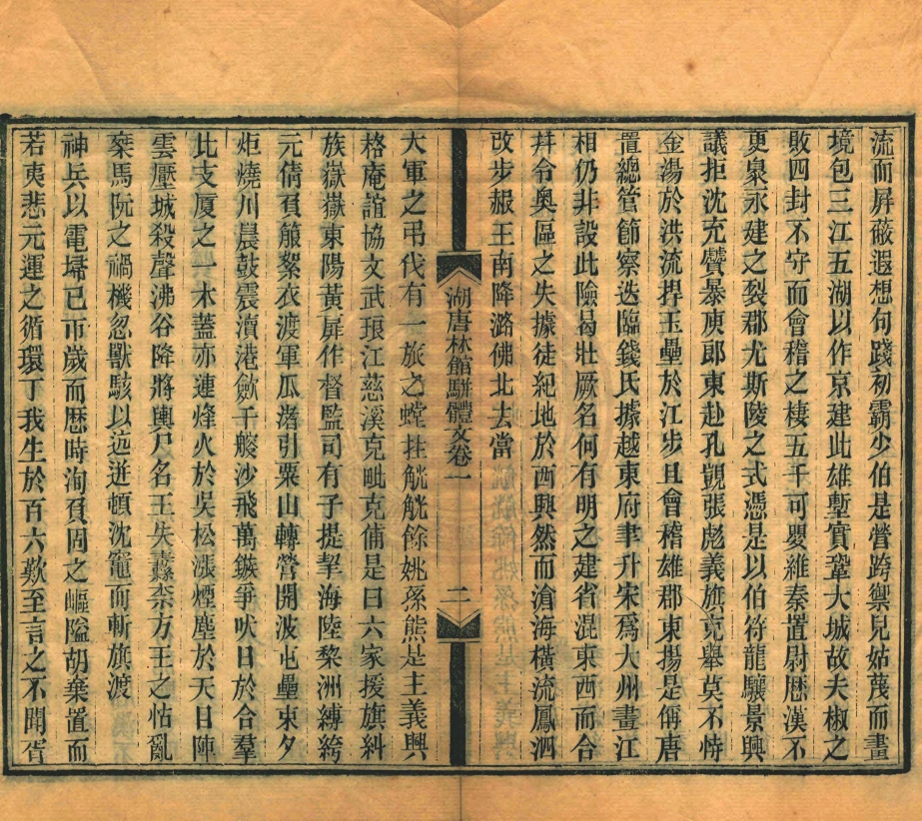 流而屏蔽遐想句踐初霸少伯是營跨禦兒姑蔑而畫
境包三江五湖以作京建此雄塹實鞏大城故夫椒之
敗四封不守而會稽之棲五千可嬰維秦置尉厯漢不
更梟永建之裂郡尤斯陵之式憑是以伯符龍驤景興
議拒沈充釁暴庾郎東赴孔覬張彪義旗竞舉莫不恃
金湯於洪流捍玉壘於江步且會稽雄郡東揚是偁唐
置總管節察迭臨錢氏據越東府聿升宋爲大州畫江
相仍非設此險曷壯厥名何有明之建省混東西而合
幷令奧區之失據徒紀地於西興然而滄海橫流鳳泗
改步赧王南降潞佛北去當
湖唐林館駢體文卷一
二
大軍之弔伐有一旅之螳拄觥觥餘姚孫熊是主義興
格庵誼協文武琅江慈溪克毗克俌是曰六家援旗糾
族嶽嶽東陽黃扉作督監司有子提挈海陸棃洲縛綔
元倩頁艆絮衣渡軍瓜潽引粟山轉營開波屯壘束夕
炬燒川晨鼓震瀆港歛千艘沙飛萬鏃爭吠日於合羣
比支厦之一木蓋亦連烽火於吳松漲煙塵於天日陣
雲壓城殺聲沸谷降將輿尸名王失纛柰方王之怙亂
桀馬阮之禍機忽獸駭以迆逬頓沈竈而斬旗渡
神兵以電埽已帀歲而厯時洵頁周之嶇隘胡棄置而
若夷悲元運之循環丁我生於百六歎至言之不聞胥